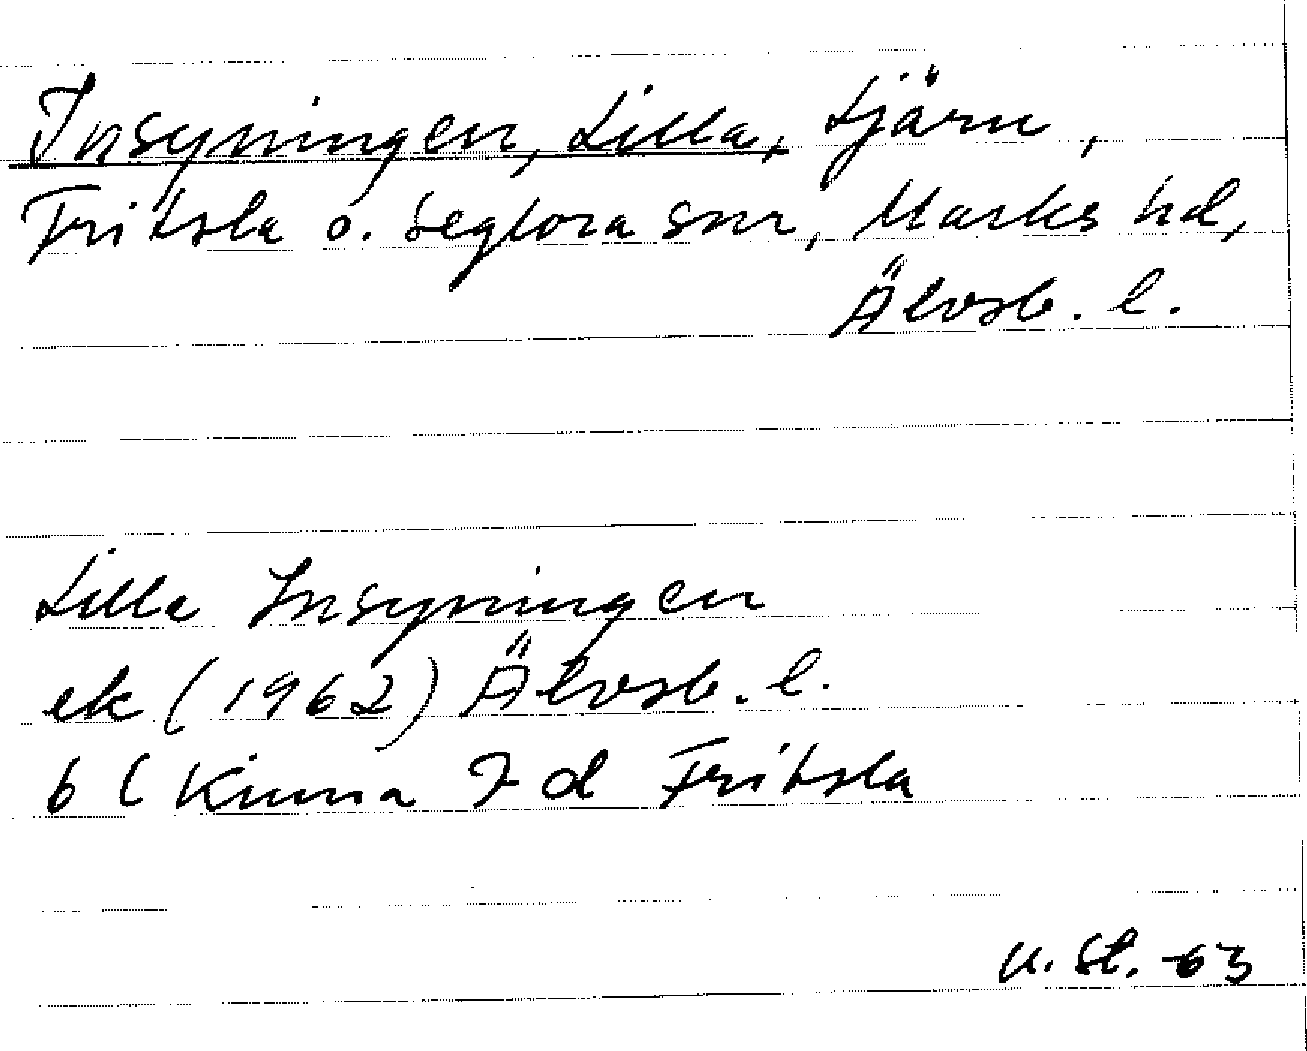 Insyningen, Lilla, tjärn,
Fritsla o. Seglora snr, Marks hd,
Älvsb. l.
Lilla Insyningen
ek (1962) Älvsb. l.
6 ( Kinna 7 d Fritsla
U. St. -63